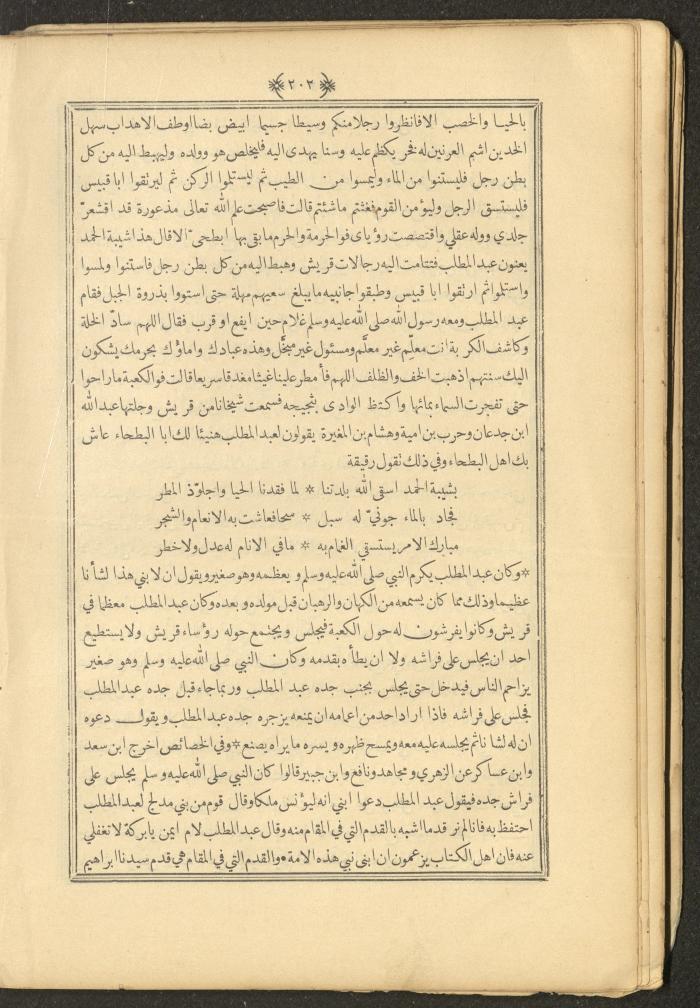 ٢٠٢
بالحيا والخصب الافانظروا رجلا منكم وسيطا جسيما ابيض بضا اوطف الاهداب سهل
الخدين اشم العرنين له فخر يكظم عليه وسنا يهدى اليه فليخلص هو وولده وليهبط اليه من كل
بطن رجل فليستنوا من الماء وليمسوا من الطيب ثم ليستلموا الركن ثم ليرتقوا ابا قبيس
فليستسق الرجل وليؤمن القوم فغثتم ما شئتم قالت فاصبحت علم الله تعالى مذعورة قد اقشعرّ
جلدي ووله عقلي واقتصصت رؤياى فوالحرمة والحرم ما بقي بها ابطحيّ الاقال هذا شيبة الحمد
يعنون عبد المطلب فتتامت اليه رجالات قريش وهبط اليه من كل بطن رجل فاستنوا ولمسوا
واستلموا ثم ارتقوا ابا قبيس وطبقوا جانبيه ما يبلغ سعيهم مهلة حتى استووا بذروة الجبل فقام
عبد المطلب ومعه رسول الله صلى الله عليه وسلم غلام حين ايفع او قرب فقال اللهم سادّ الخلة
وكاشف الكربة انت معلِّم غير معلَّم ومسئول غير مبخَّل وهذه عبادك واماؤك بحرمك يشكون
اليك سنتهم اذهبت الخف والظلف اللهم فأمطر علينا غيثا مغدقا سريعا قالت فوالكعبة ما راحوا
حتى تفجرت السماء بمائها واكتظ الوادى بثجيجه فسمعت شيخانا من قريش وجلتها عبد الله
ابن جدعان وحرب بن امية وهشام بن المغيرة يقولون لعبد المطلب هنيئا لك ابا البطحاء عاش
بك اهل البطحاء وفي ذلك تقول رقيقة
بشيبة الحمد اسقى الله بلدتنا * لما فقدنا الحيا واجلوّذ المطر
فجاد بالماء جونيّ له سبل * سحا فعاشت به الانعام والشجر
مبارك الامر يستسقى الغمام به * ما في الانام له عدل ولا خطر
*وكان عبد المطلب يكرم النبي صلى الله عليه وسلم ويعظمه وهو صغير ويقول ان لابني هذا لشأنا
عظيما وذلك مما كان يسمعه من الكهان والرهبان قبل مولده وبعده وكان عبد المطلب معظما في
قريش وكانوا يفرشون له حول الكعبة فيجلس ويجتمع حوله رؤساء قريش ولا يستطيع
احد ان يجلس على فراشه ولا ان يطأه بقدمه وكان النبي صلى الله عليه وسلم وهو صغير
يزاحم الناس فيدخل حتى يجلس بجنب جده عبد المطلب وربما جاء قبل جده عبد المطلب
فجلس على فراشه فاذا اراد احد من اعمامه ان يمنعه يزجره جده عبد المطلب ويقول دعوه
ان له لشانا ثم يجلسه عليه معه ويمسح ظهره ويسره ما يراه يصنع*وفي الخصائص اخرج ابن سعد
وابن عساكر عن الزهري ومجاهد ونافع وابن جبير قالوا كان النبي صلى الله عليه وسلم يجلس على
فراش جده فيقول عبد المطلب دعوا ابني انه ليؤنس ملكا وقال قوم من بني مدلج لعبد المطلب
احتفظ به فانا لم نر قدما اشبه بالقدم التي في المقام منه وقال عبد المطلب لام ايمن يا بركة لا تغفلي
عنه فان اهل الكتاب يزعمون ان ابنى نبي هذه الامة•والقدم التي في المقام هي قدم سيدنا ابراهيم